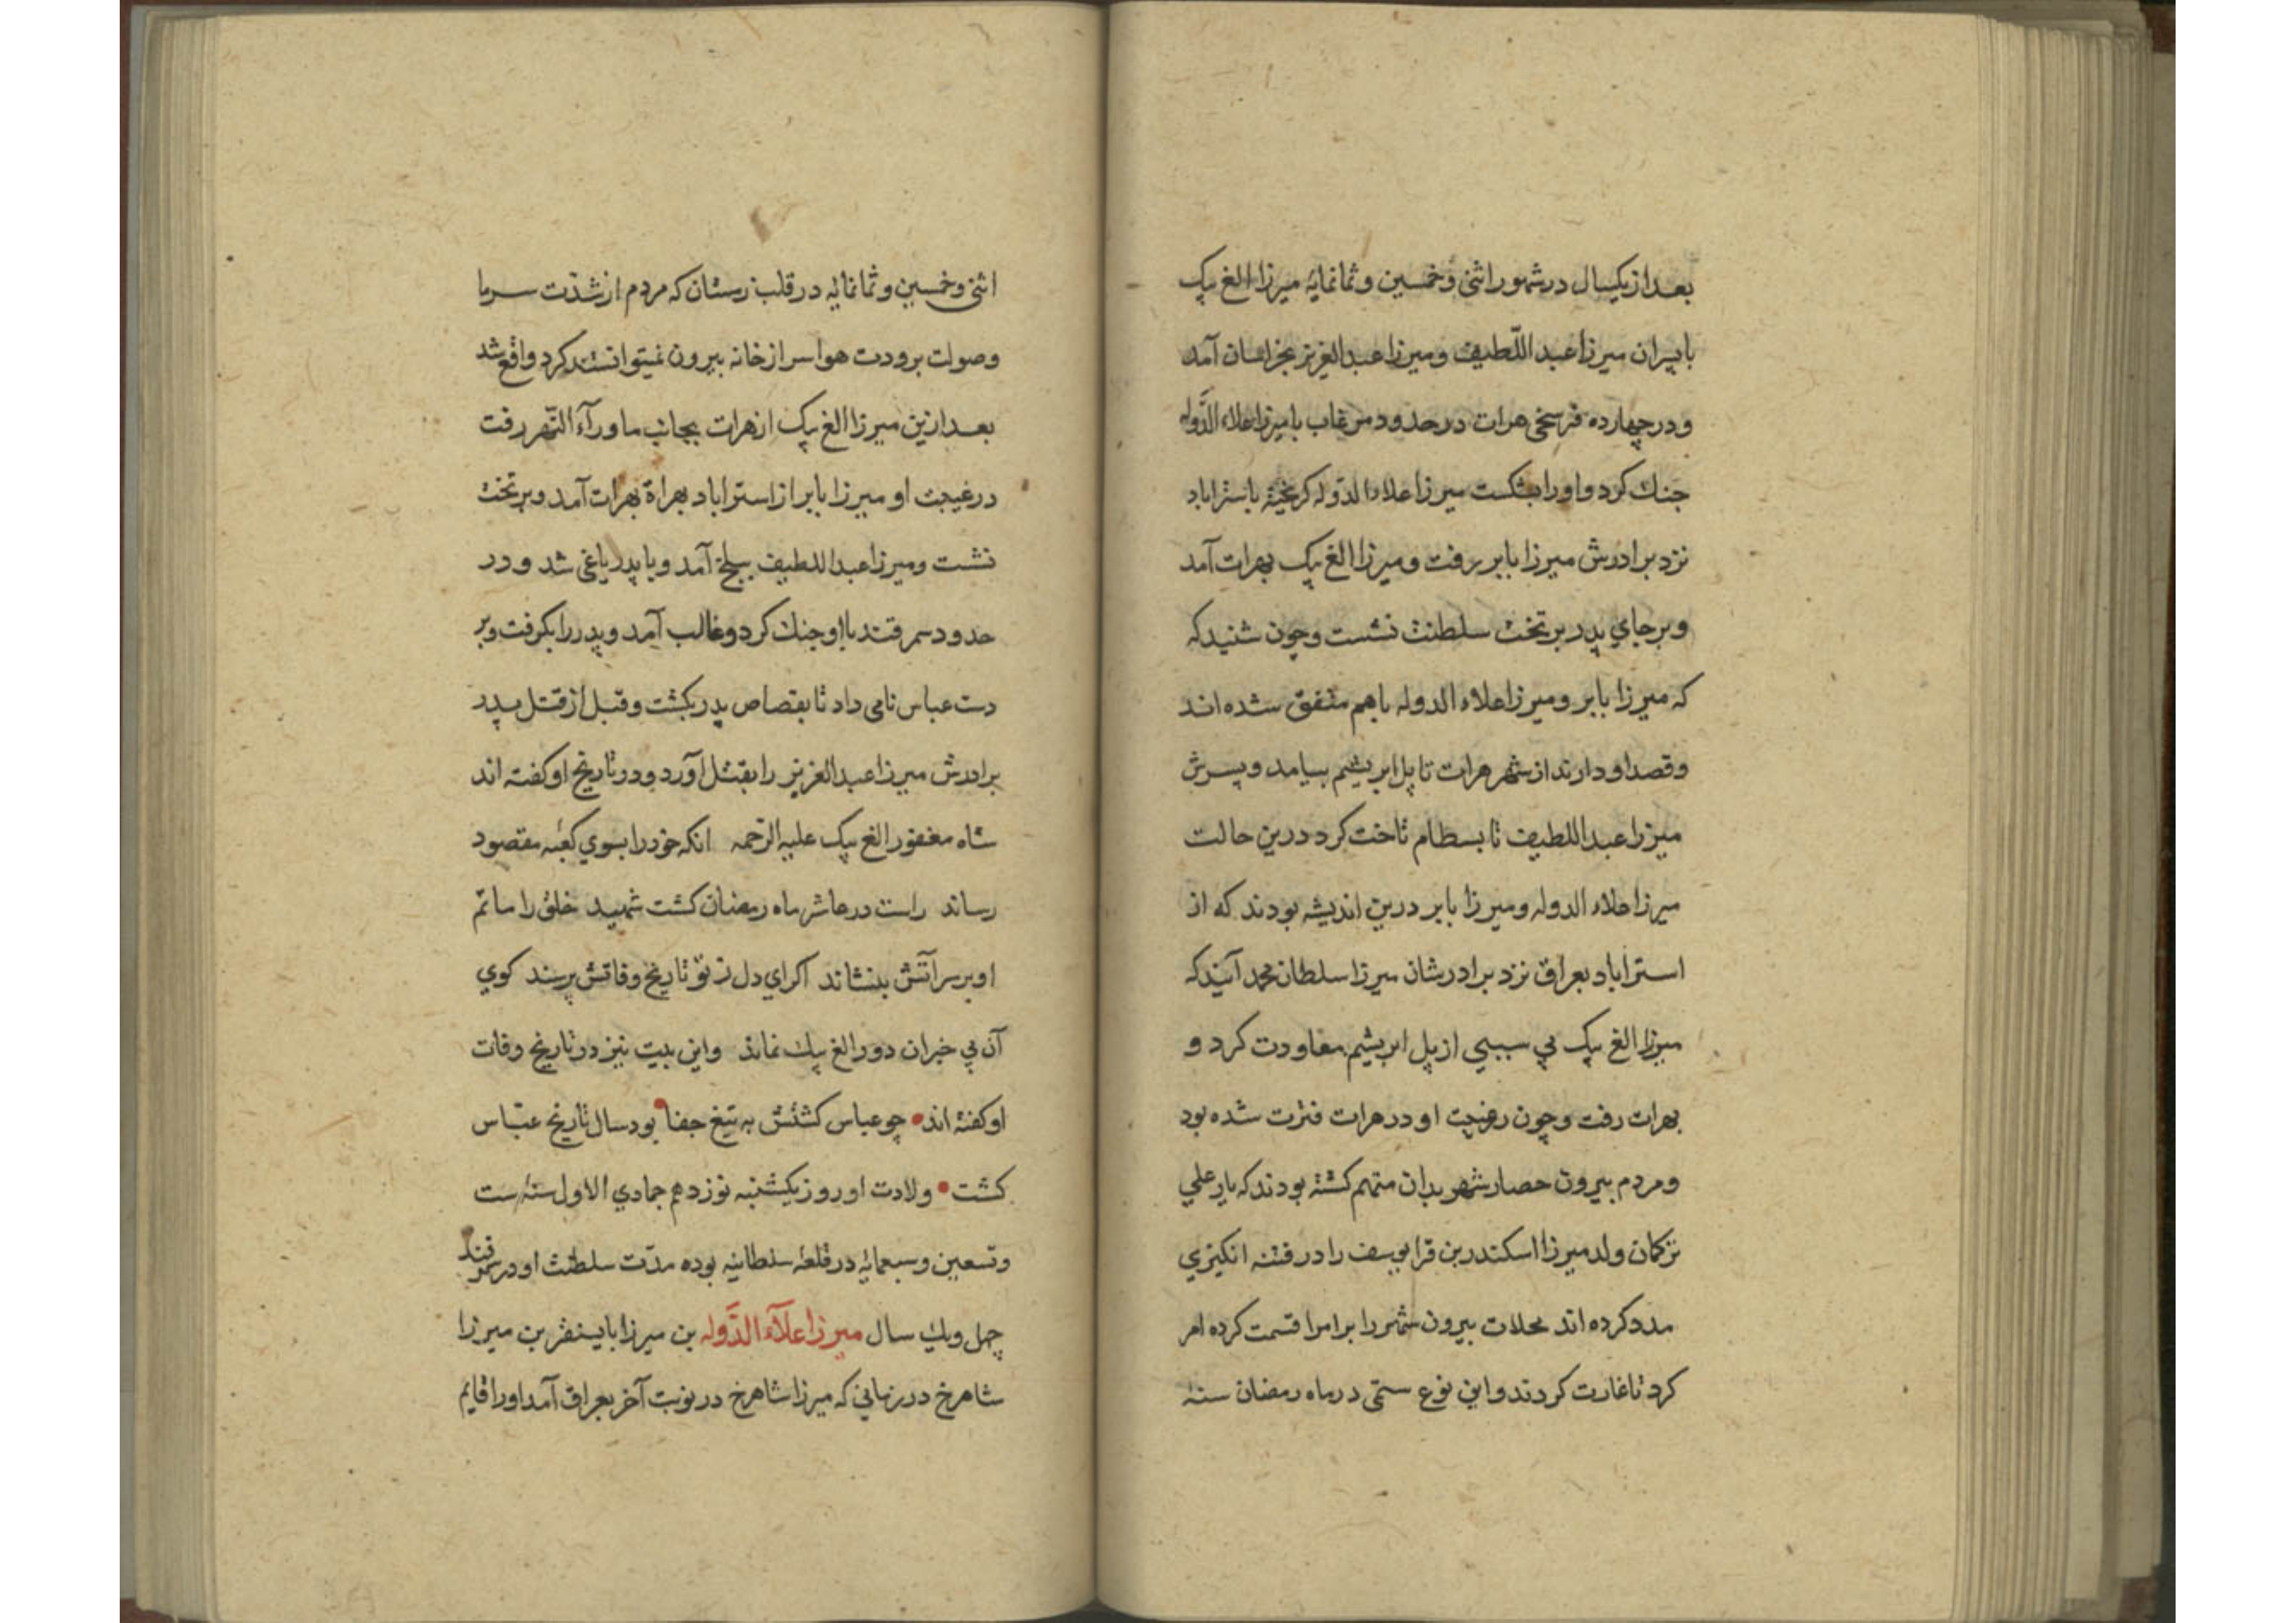 بعد از یکسال در شهور اثنی و خمسین و ثمانمایه میرزا الغ بیک
با پسران میرزا عبد اللّطیف و میرزا عبد العزیز بخراسان آمد
و در چهارده فرسخی هرات در حدود مرغاب با میرزا علاء الدَّوله
جنك کرد و او را بشکست میرزا علاء الدّوله کریخته باستراباد
نزد برادرش میرزا بابر رفت و میرزا الغ بیک بهرات آمد
و بر جاي پدر بر تخت سلطنت نشست و چون شنید که
که میرزا بابر و میرزا علاء الدوله باهم متفق شده اند
و قصد او دارند از شهر هرات تا پل ابریشم بیامد و پسرش
میرزا عبد اللطیف تا بسطام تاخت کرد درین حالت
میرزا علاء الدوله و میرزا بابر درین اندیشه بودند که از
استراباد بعراق نزد برادرشان میرزا سلطان محمد آیند که
میرزا الغ بیک بي سببي از پل ابریشم معاودت کرد و
بهرات رفت و چون در غیبت او در هرات فترت شده بود
و مردم بیرون حصار شهر بدان متهم کشته بودند که یار علي
ترکمان ولد میرزا اسکندر بن قرا یوسف را در فتنه انکیزي
مدد کرده اند محلات بیرون شهر را بر امرا قسمت کرده امر
کرد تا غارت کردند و این نوع ستمی در ماه رمضان سنهٔ
اثنی و خمسین و ثمانمائه در قلب زمستان که مردم از شدّت سرما
و صولت برودت هوا سر از خانه بیرون نمیتوانستند کرد واقع شد
بعد ازین میرزا الغ بیک از هرات بجانب ماورآء النّهر رفت
در غیبت او میرزا بابر از استراباد بهراة بهرات آمد و بر تخت
نشت و میرزا عبد اللطیف ببلخ آمد و با پدر یاغی شد و در
حدود سمرقند با او جنك کرد و غالب آمد و پدر را بکرفت و بر
دست عباس نامی داد تا بقصاص پدر بکشت و قبل از قتل پدر
برادرش میرزا عبد العزیز را بقتل آورد و در تاریخ او کفته اند
شاه مغفور الغ بیک علیه الرّحمه انکه خود را بسوي کعبهٔ مقصود
رساند راست در عاشر ماه رمضان کشت شهید خلق را ماتم
او بر سر آتش بنشاند اکر اي دل ز تو تاریخ وفاتش پرسند کوي
آن بي خبران دور الغ بیك نماند و این بیت نیز در تاریخ وفات
او کفته اند • چو عباس کشتش به تیغ جفا • بود سال تاریخ عبّاس
کشت • ولادت او روز یکشنبه نوزدهم جمادي الاول سنهٔ ست
و تسعین و سبعمائه در قلعهٔ سلطانیه بوده مدّت سلطنت او در سمرقند
چهل و یك سال میرزا علآء الدَّوله بن میرزا بایسنقر بن میرزا
شاهرخ در زماني که میرزا شاهرخ در نوبت آخر بعراق آمد او را قایم